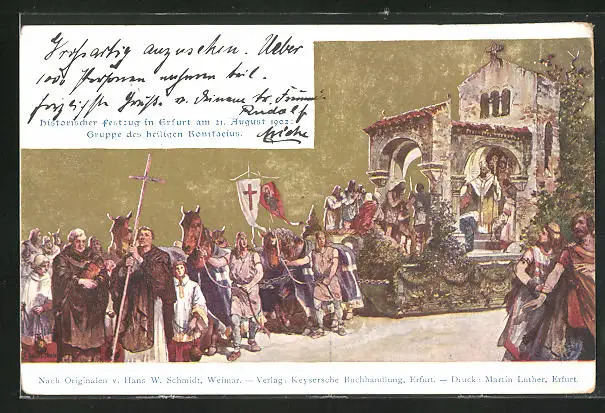 Großartig anzusehen. Ueber
1000 Personen nahmen teil.
Grüße v. deinem tr.
Rudolf
Historischer Festzug in Erfurt am 21. August 1902:
Gruppe des heiligen Bonifacius.
Nach Originalen v. Hans W. Schmidt, Weimar. — Verlag: Keysersche Buchhandlung, Erfurt. — Druck: Martin Luther, Erfurt.